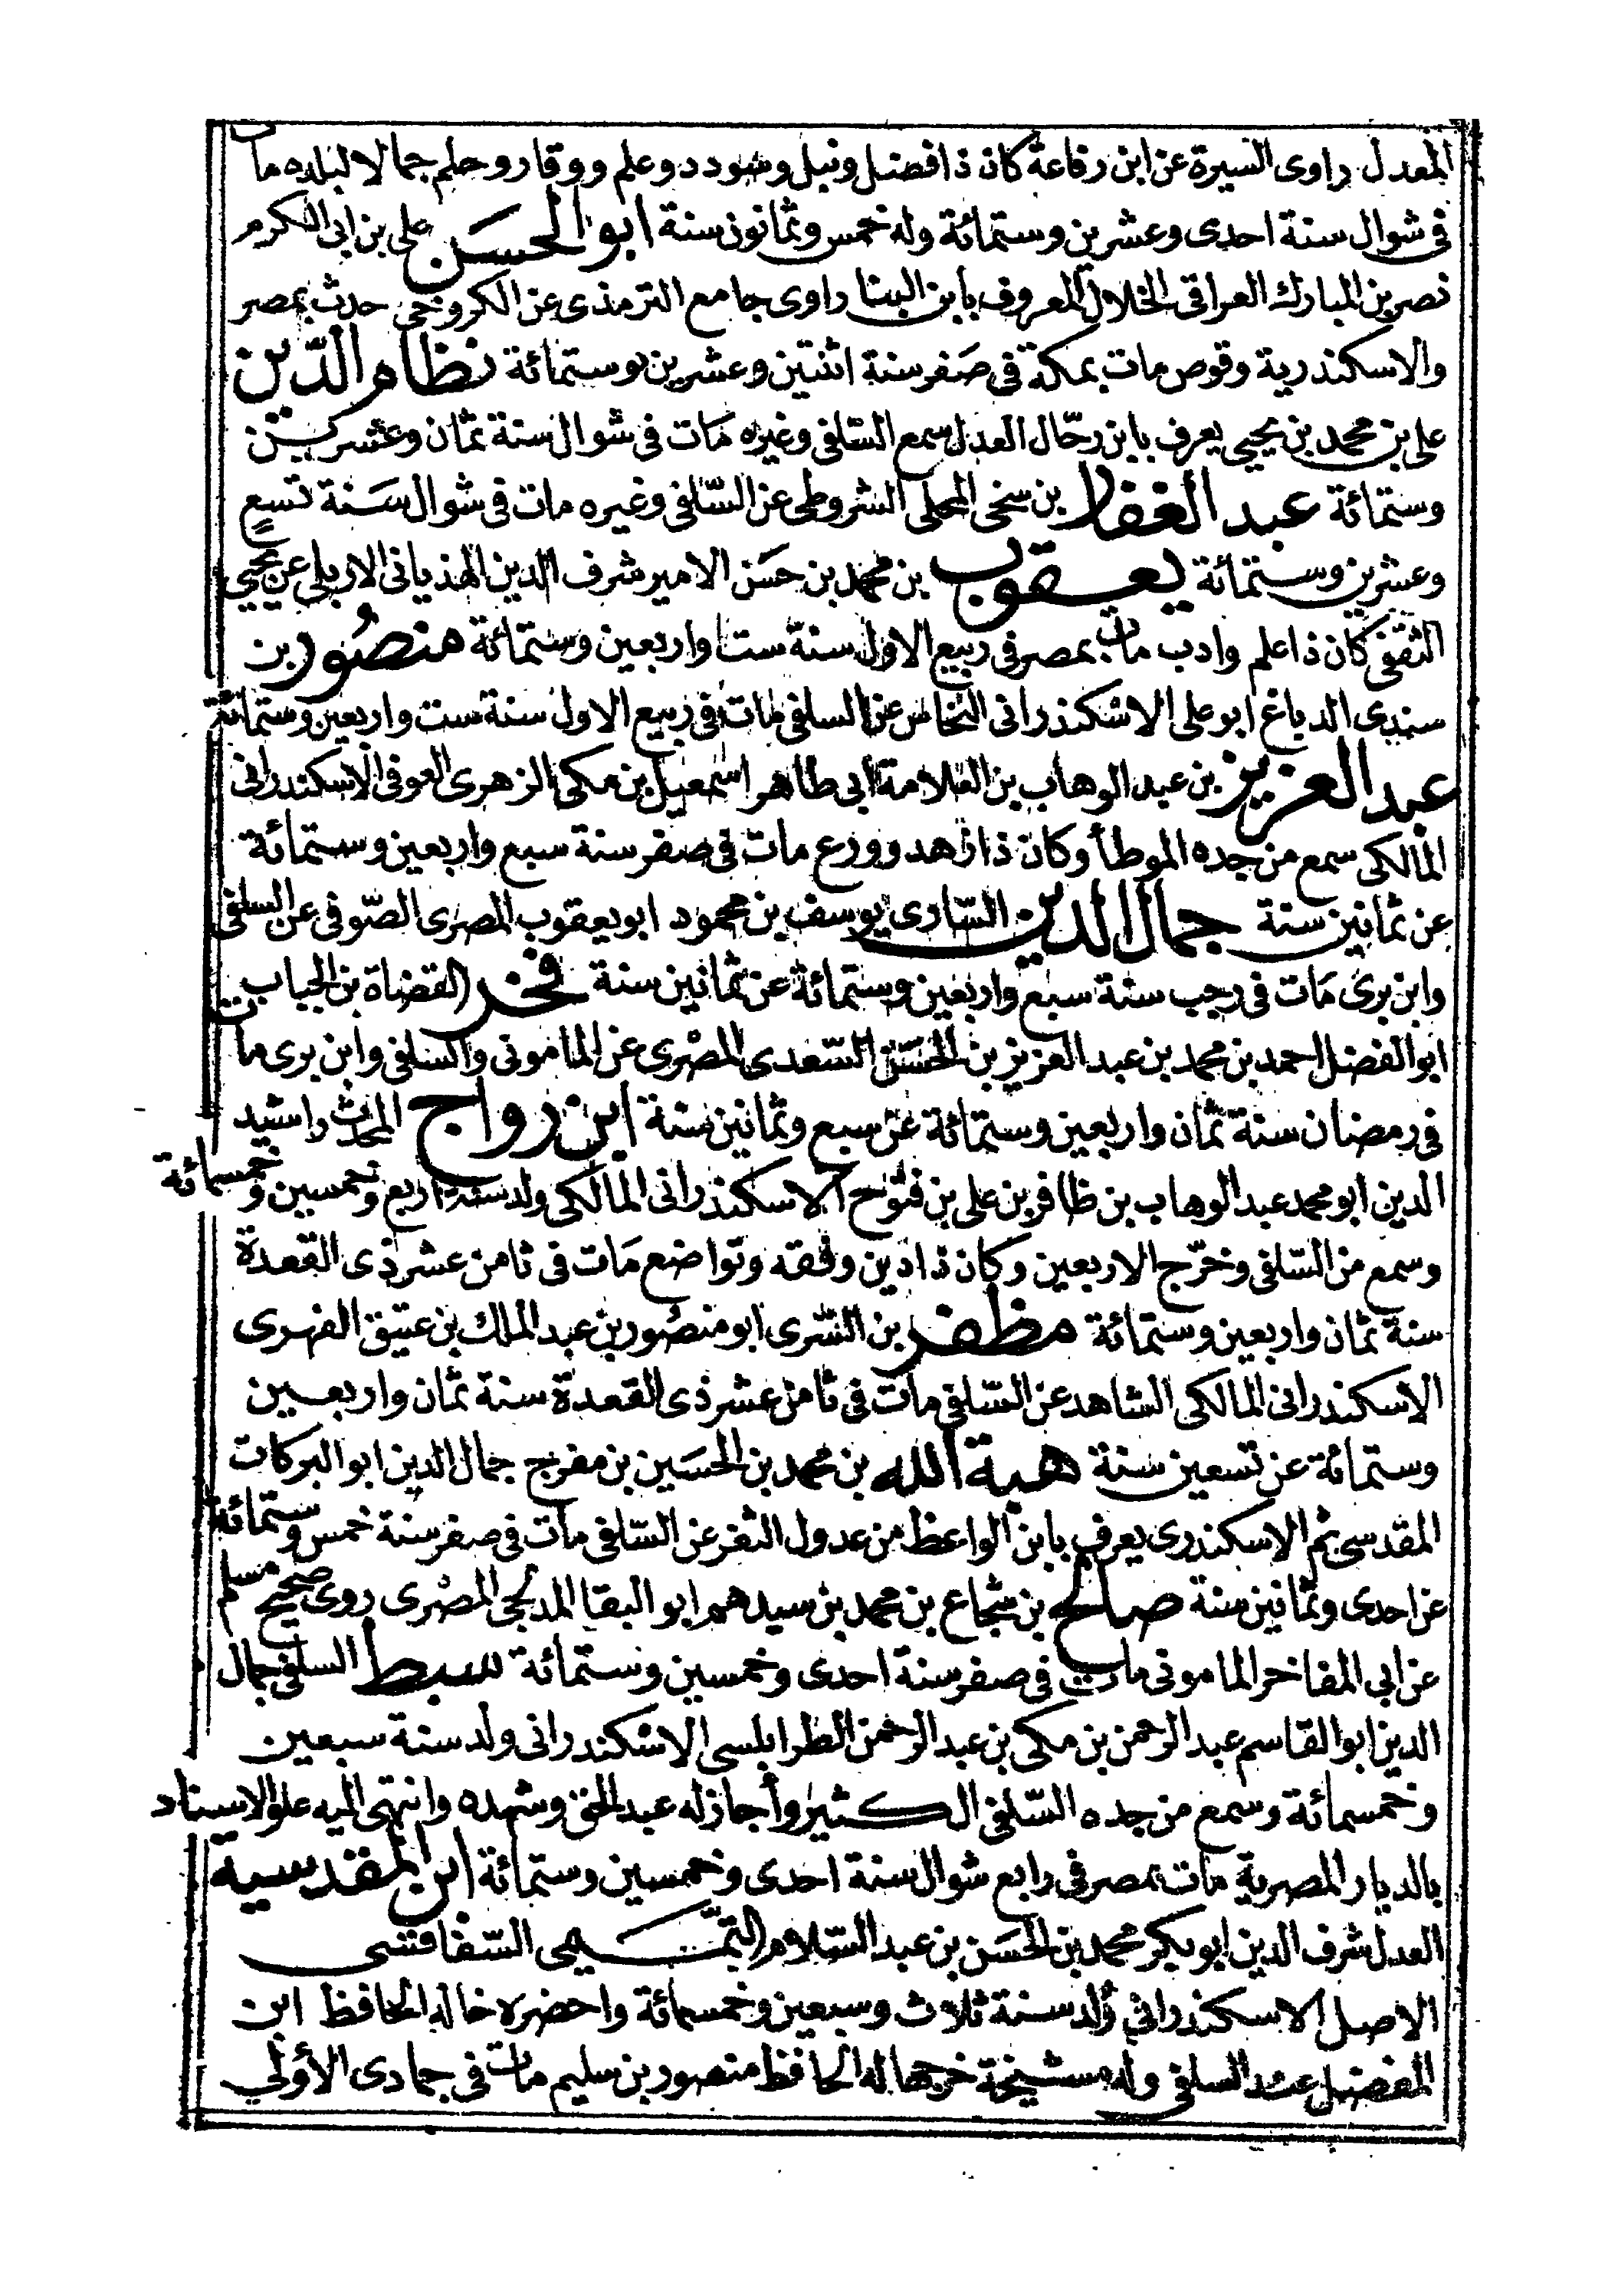 المعدل راوى السيرة عن ابن رفاعة كان ذا فضل ونبل وسودد وعلم ووقار وحلم جمالا لبلده مات
فى شوال سنة احدى وعشرين وستمائة وله خمس وثمانون سنة ابو الحسن على بن ابى الكرم
نصر بن المبارك العراقى الخلال المعروف بابن البنا راوى جامع الترمذى عن الكروخى حدث بمصر
والاسكندرية وقوص مات بمكة فى صفر سنة اثنتين وعشرين وستمائة نظام الدين
على بن محمد بن يحيى يعرف بابن رحّال العدل سمع السّلفى وغيره مات فى شوال سنة ثمان وعشرين
وستمائة عبد الغفار بن سخى المحلى الشروطى عن السّلفى وغيره مات فى شوال سنة تسع
وعشرين وستمائة يعقوب بن محمد بن حسن الامير شرف الدين الهذيانى الاربلى عن يحيى
الثقفى كان ذا علم وادب مات بمصر فى ربيع الاول سنة ست واربعين وستمائة منصُور بن
سندى الدباغ ابو على الاسكندرانى النخاس عن السلفى مات فى ربيع الاول سنة ست واربعين وستمائة
عبد العزيز بن عبد الوهاب بن العلامة ابى طاهر اسمعيل بن مكى الزهرى العوفى الاسكندرانى
المالكى سمع من جده الموطأ وكان ذا زهد وورع مات فى صفر سنة سبع واربعين وستمائة
عن ثمانين سنة جمال الدين السّاوى يوسف بن محمود ابو يعقوب المصرى الصّوفى عن السلفى
وابن برى مات فى رجب سنة سبع واربعين وستمائة عن ثمانين سنة فخر القضاة بن الجباب
ابو الفضل احمد بن محمد بن عبد العزيز بن الحسن السّعدى المصْرى عن المامونى والسلفى وابن برى مات
فى رمضان سنة ثمان واربعين وستمائة عن سبع وثمانين سنة ابن رواج المحدث راشيد
الدين ابو محمد عبد الوهاب بن ظافر بن على بن فتّوح الاسكندرانى المالكى ولد سنة اربع وخمسين وخمسمائة
وسمع من السّلفى وخرّج الاربعين وكان ذا دين وفقه وتواضع مات فى ثامن عشر ذى القعدة
سنة ثمان واربعين وستمائة مظفر بن السّرى ابو منصُور بن عبد الملك بن عتيق الفهرى
الاسكندرانى المالكى الشاهد عن السّلفى مات فى ثامن عشر ذى القعدة سنة ثمان واربعين
وستمائة عن تسعين سنة هبة الله بن محمد بن الحسَين بن مفرج جمال الدين ابو البركات
المقدسى ثم الاسكندرى يعرف بابن الواعظ من عدول الثغر عن السّلفى مات فى صفر سنة خمس وستمائة
عن احدى وثمانين سنة صالح بن شجاع بن محمد بن سيدهم ابو البقا المدلجى المصْرى روى صحيح مسلم
عن ابى المفاخر المامونى مات فى صفر سنة احدى وخمسين وستمائة سبط السلفى جمال
الدين ابو القاسم عبد الرحمن بن مكى بن عبد الرحمن الطرابلسى الاسْكندرانى ولد سنة سبعين
وخمسمائة وسمع من جده السّلفى الكثير وأجاز له عبد الحق وشهده وانتهى اليه علو الاسناد
بالديار المصرية مات بمصر فى رابع شوال سنة احدى وخمسين وستمائة ابن المقدسية
العدل شرف الدين ابو بكر محمد بن الحسَن بن عبد السّلام التّميمى السّفاقسى
الاصل الاسكندرانى ولد سنة ثلاث وسبعين وخمسمائة واحضره خاله الحافظ ابن
المفضل عند السلفى وله مشيخة خرجها له الحافظ منصور بن سليم مات فى جمادى الأولى